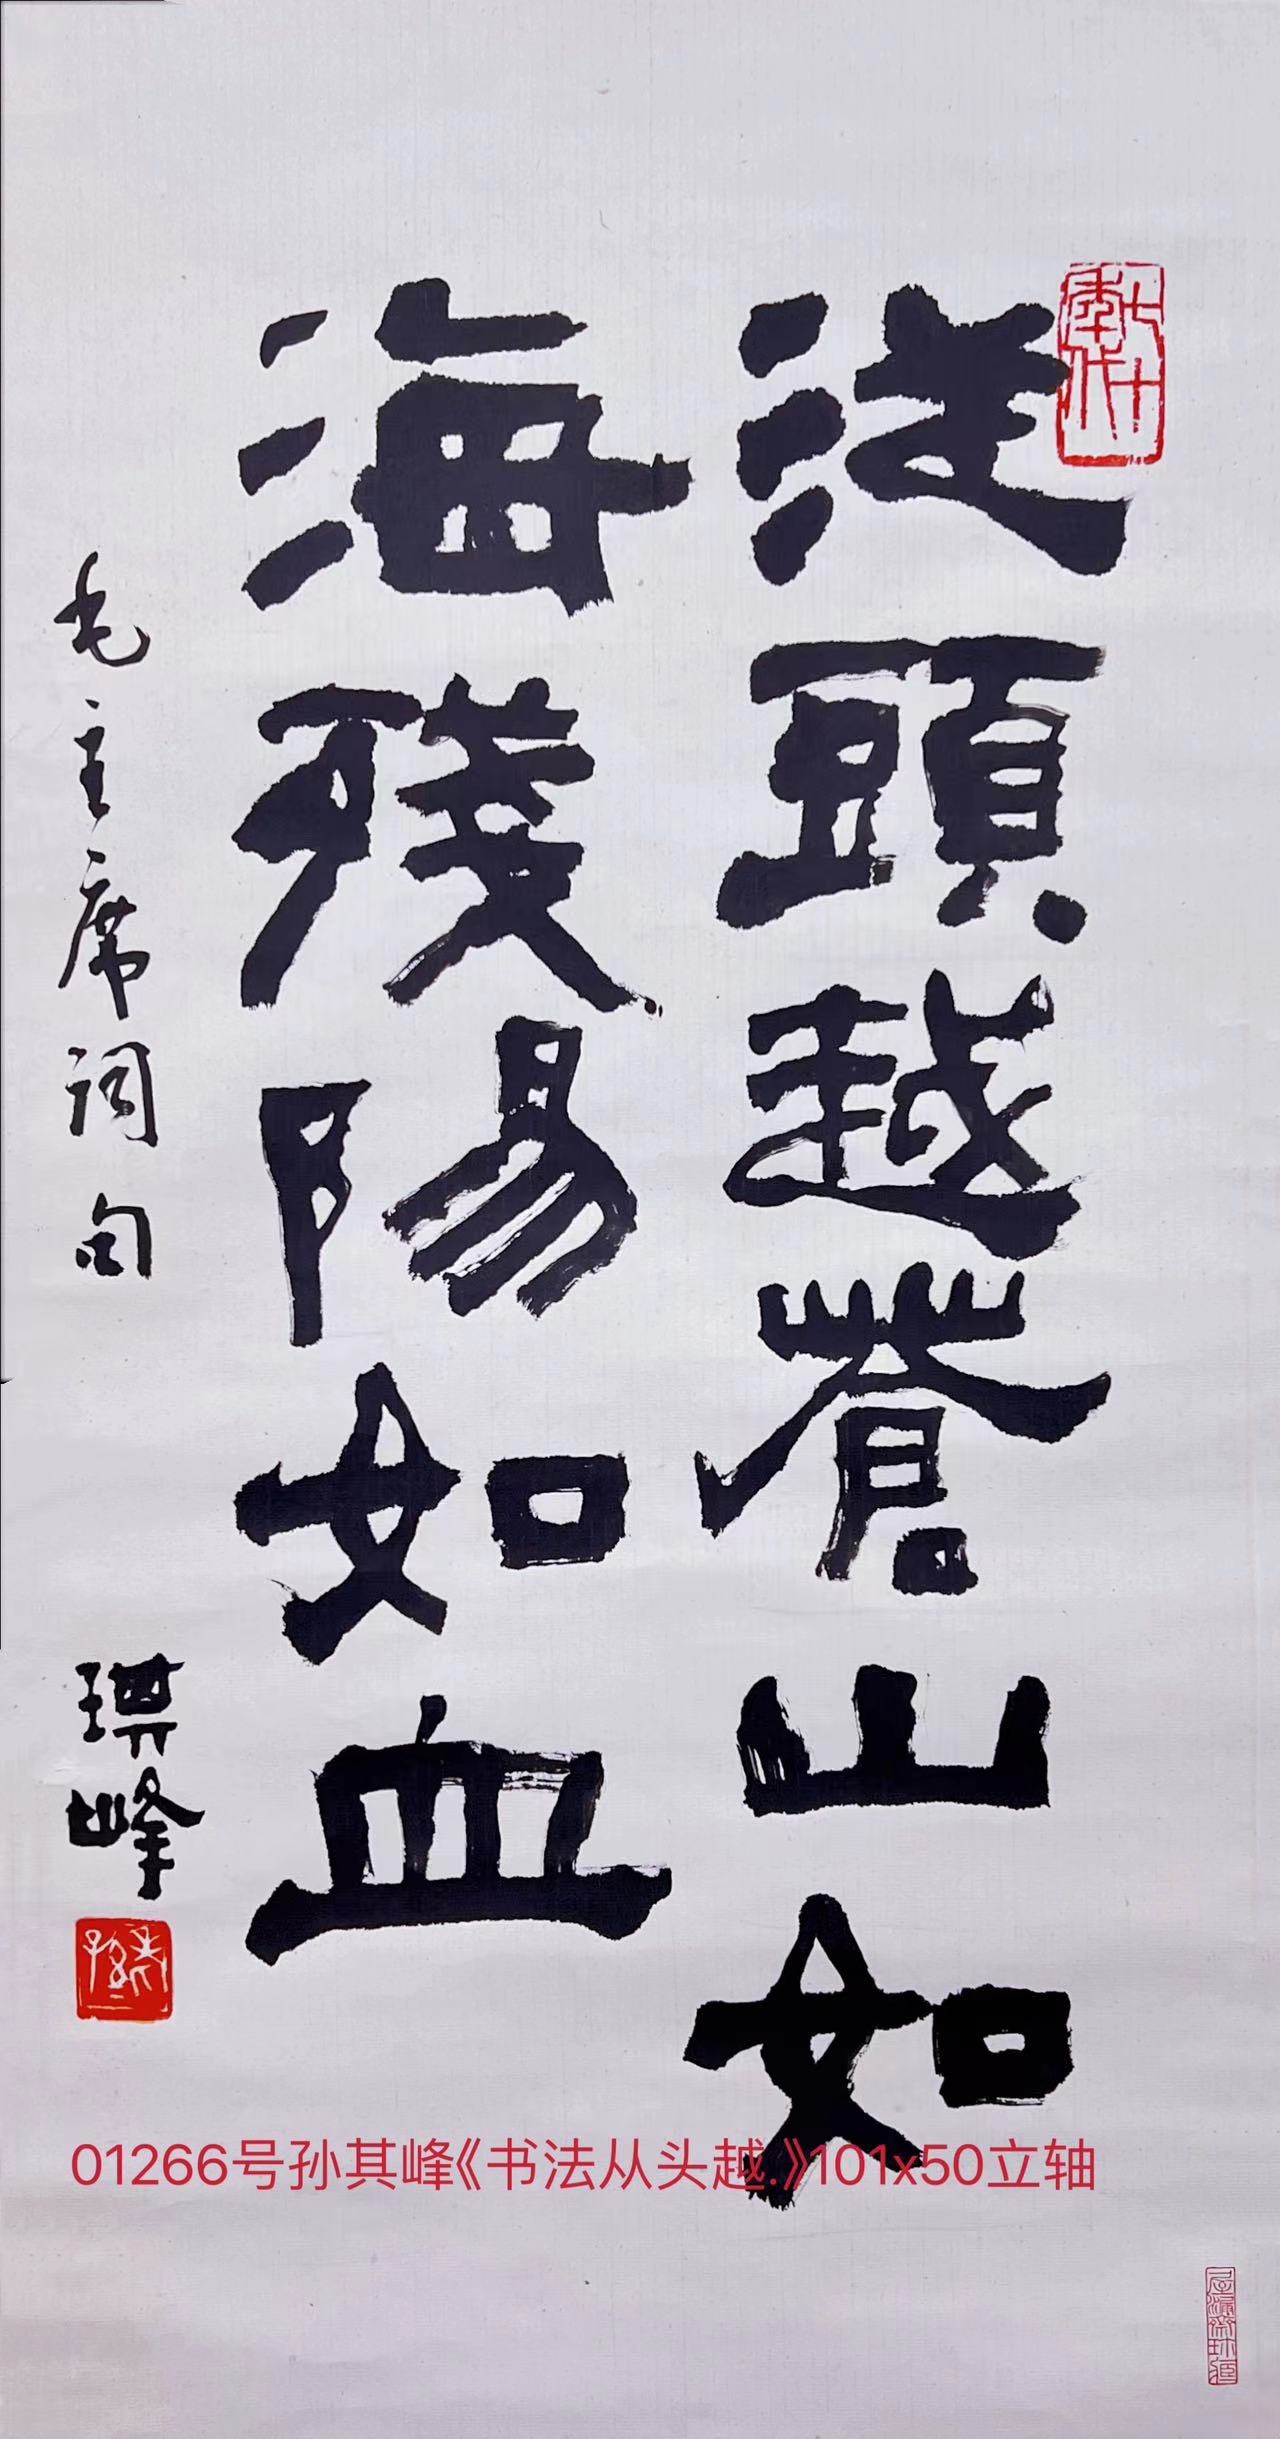 七十年代
從頭越蒼山如
海殘陽如血
毛主席词句
琪峰
01266号孙其峰《书法从头越.》101x50立轴